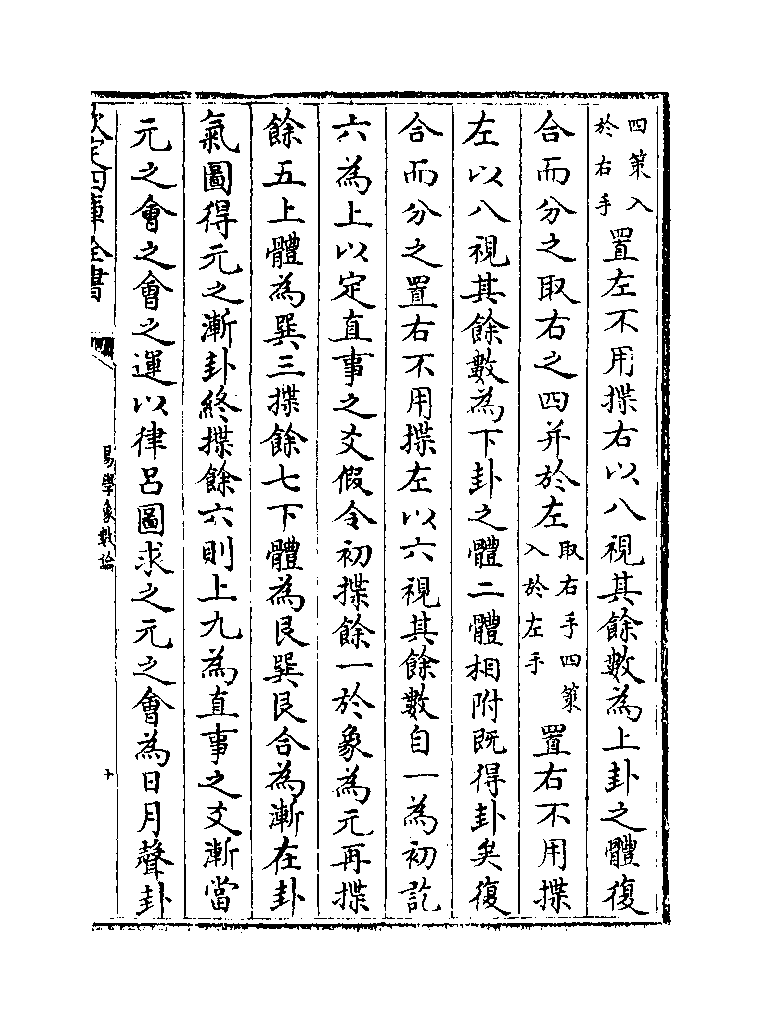 四策入
於右手
置左不用揲右以八視其餘數為上卦之體復
合而分之取右之四并於左
取右手四策
入於左手
置右不用揲
左以八視其餘數為下卦之體二體相附既得卦矣復
合而分之置右不用揲左以六視其餘數自一為初訖
六為上以定直事之爻假令初揲餘一於象為元再揲
餘五上體為巽三揲餘七下體為艮巽艮合為漸在卦
氣圖得元之漸卦終揲餘六則上九為直事之爻漸當
元之會之會之運以律呂圖求之元之會為日月聲卦
欽定四庫全書
易學象數論
十